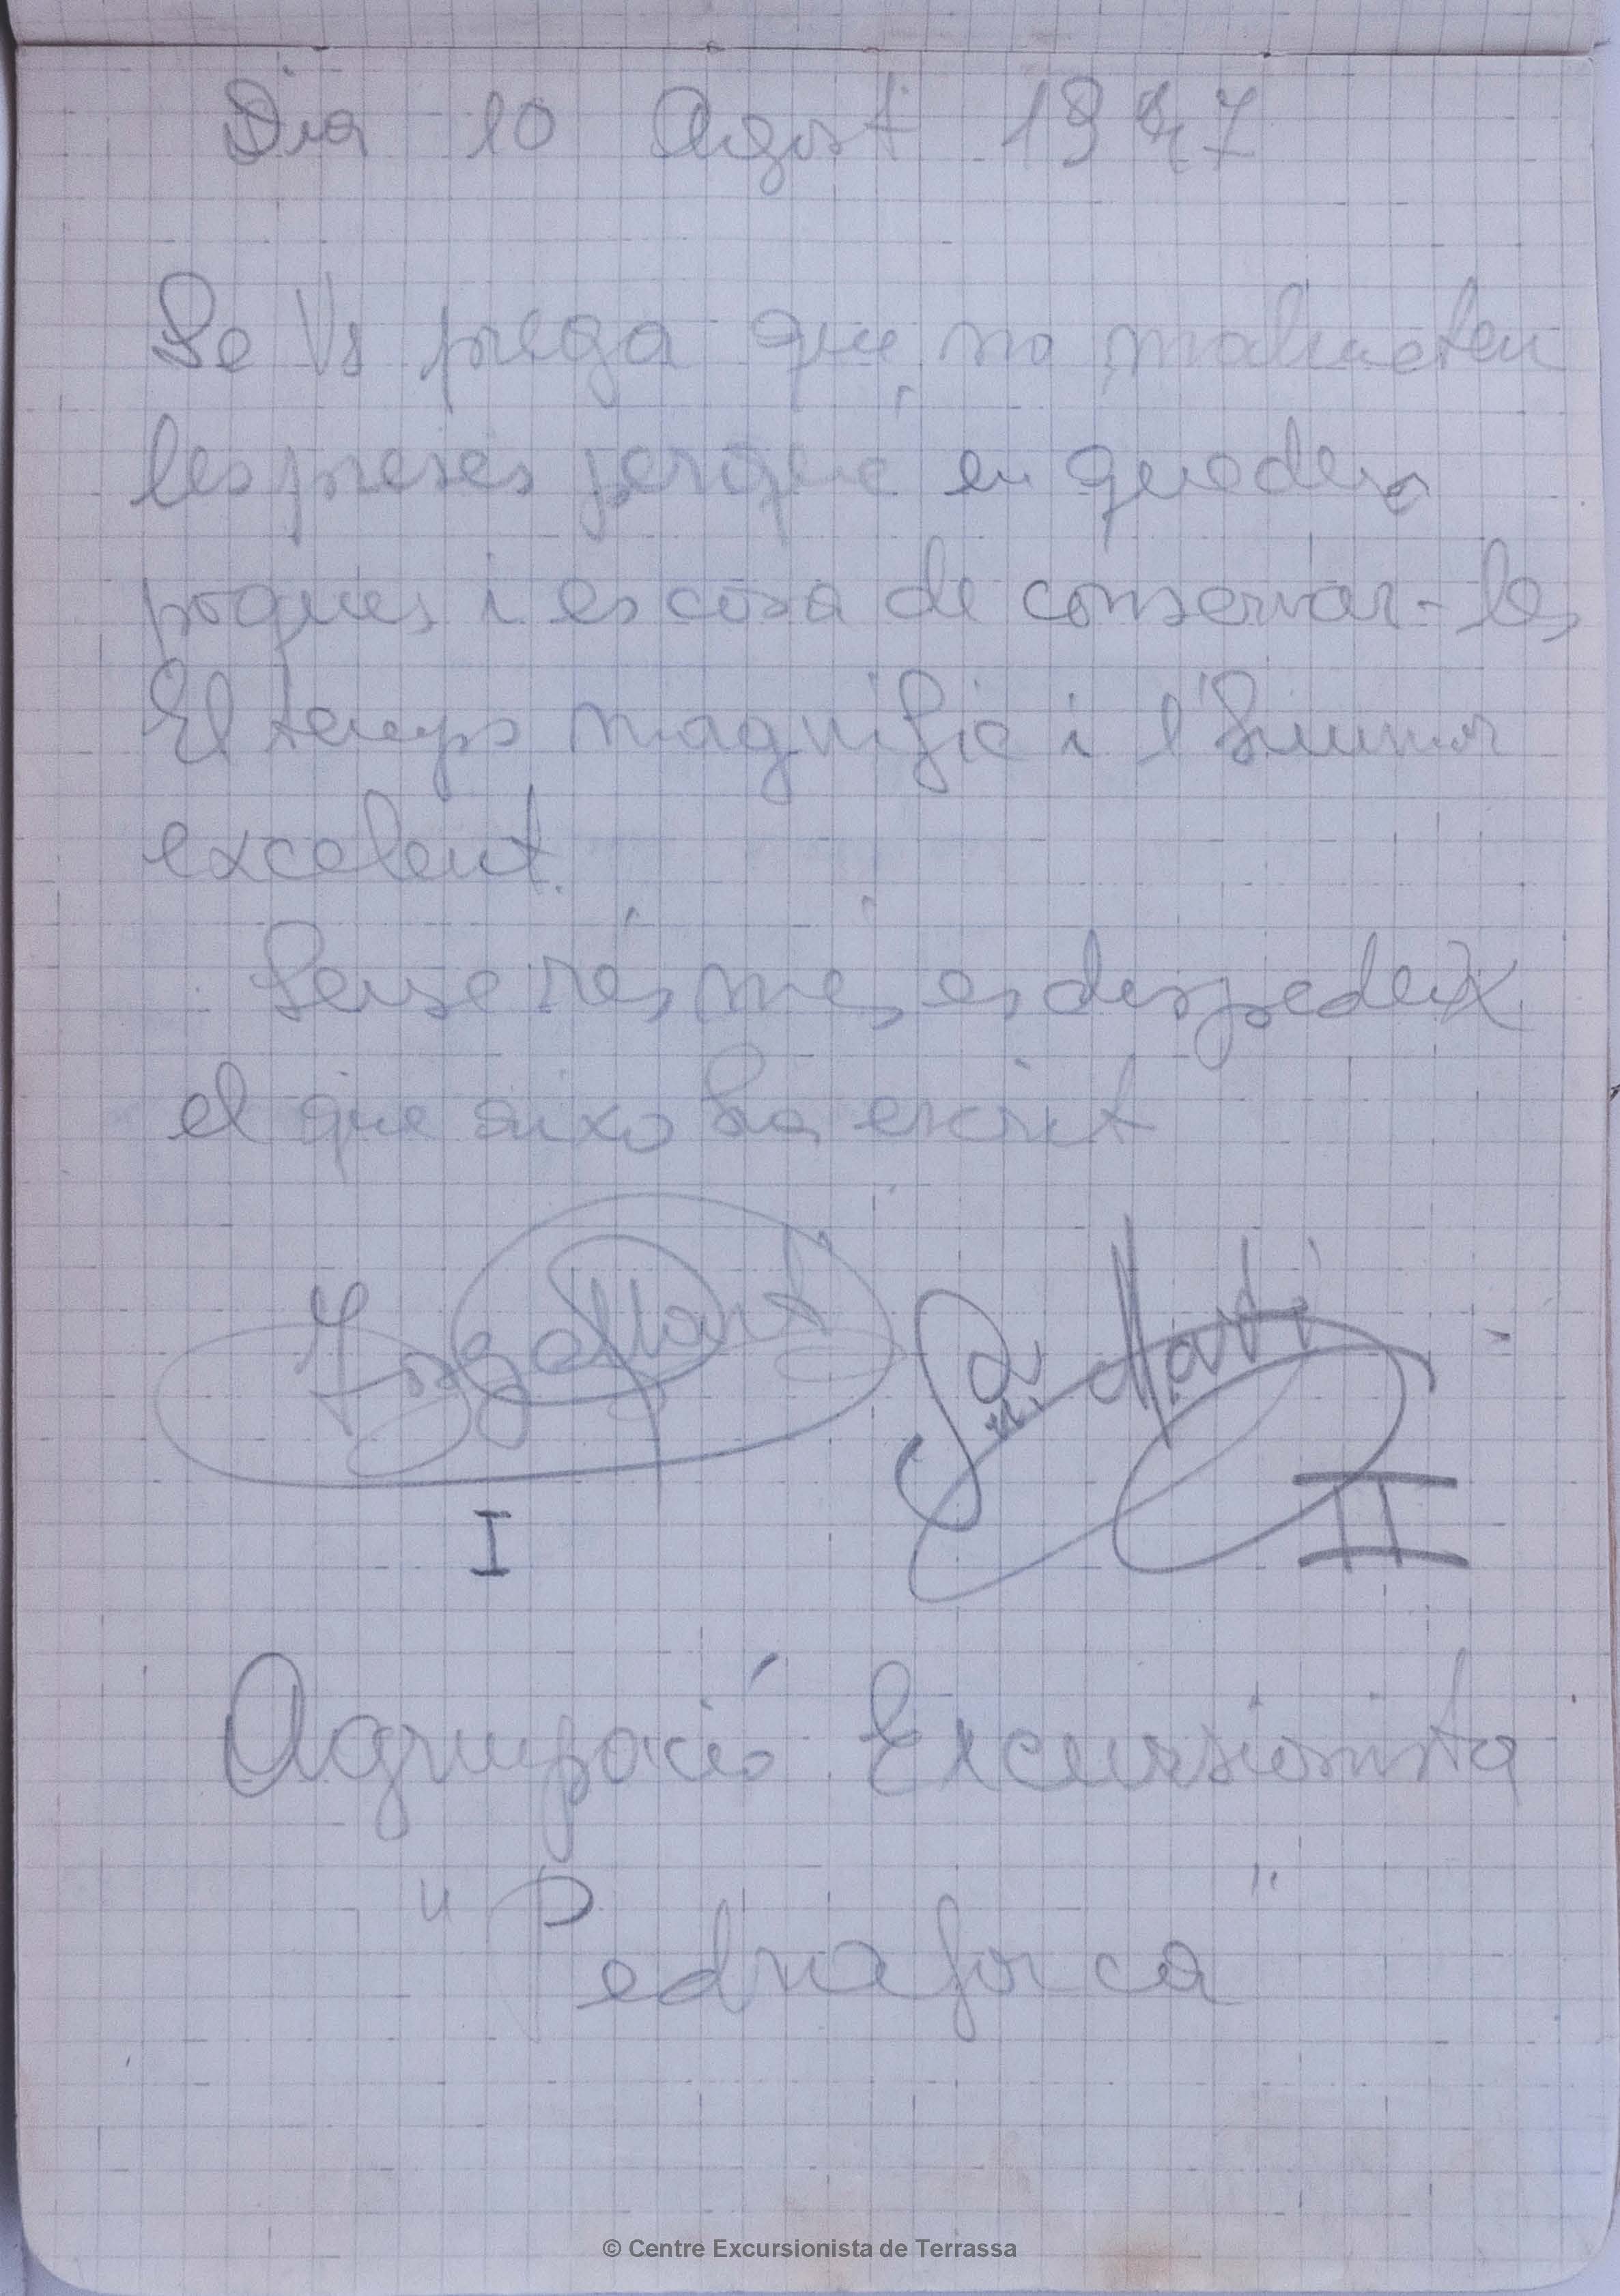 Dia 10 Agost 1947
Se Vs prega que no malmeteu
les preses perqué en queden
poques i es cosa de conservar-les
El temps magnific i l'humor
excelent.
Sense rés més es despedeix
el que aixo ha escrit
Martí
I
II
Agrupació Excursionista
"Pedraforca"
© Centre Excursionista de Terrassa